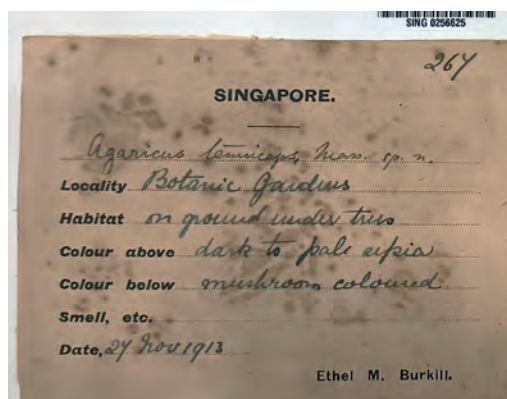 SING 0256625
267
SINGAPORE.
Agaricus tenuiceps, Mass. sp. n.
Locality Botanic Gardens
Habitat on ground under trees
Colour above dark to pale sepia
Colour below mushroom coloured
Smell, etc.
Date, 27 Nov 1913
Ethel M. Burkill.